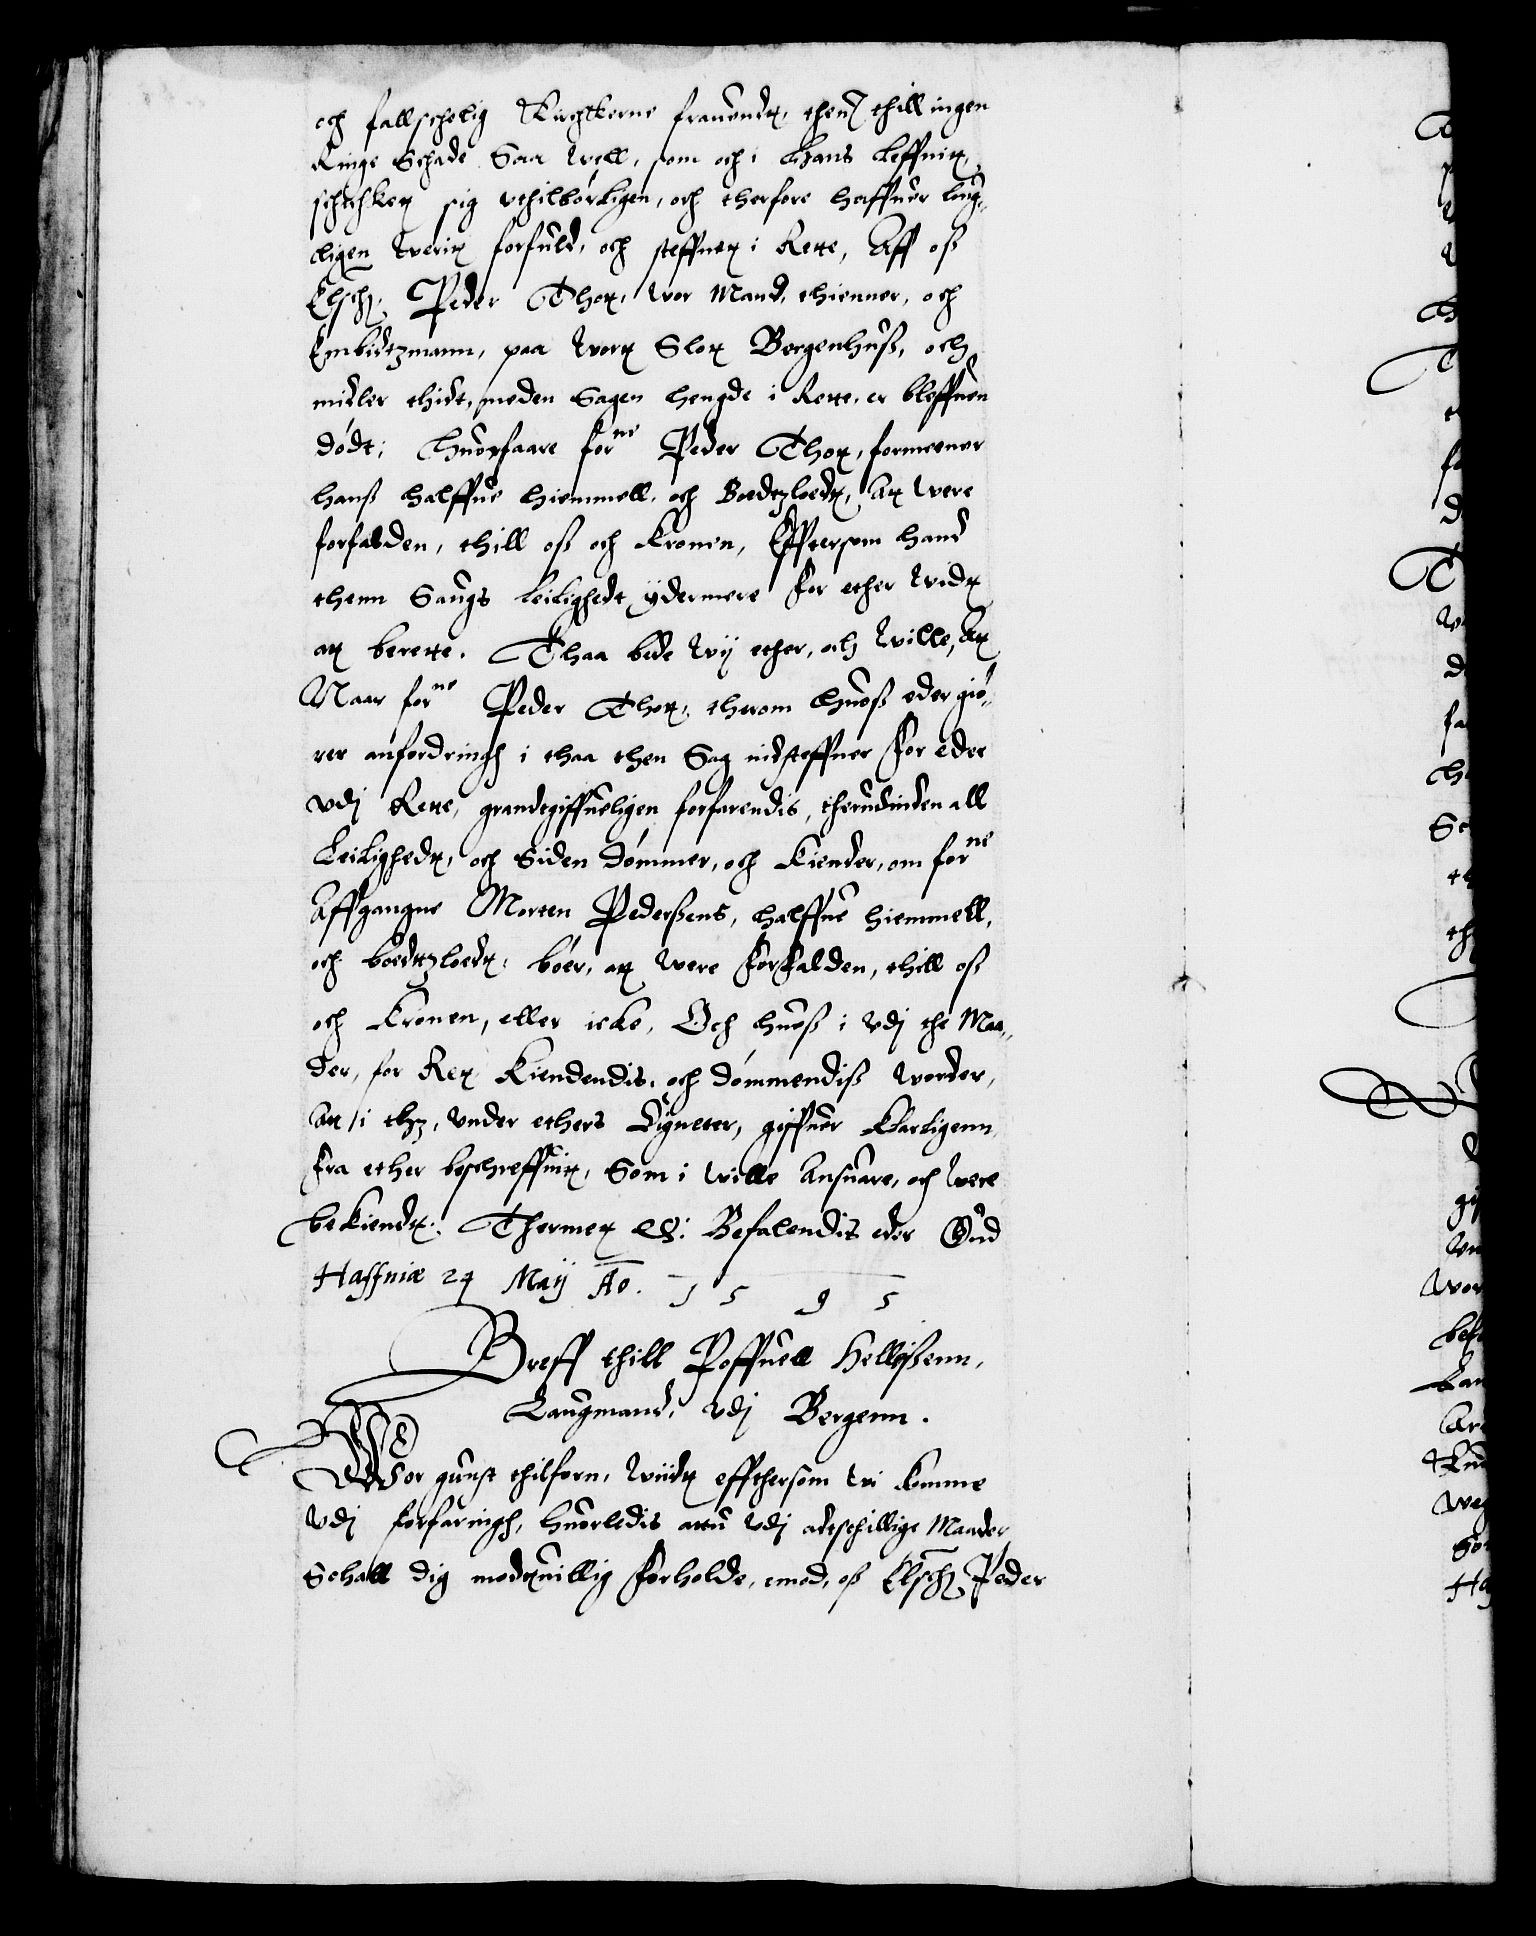 och fallschelig Kirchkerne frauendt, thenn thill ingen
Ringe Schade Saa well, som och i hans leffnit,
schichket sig vthilbórligen, och therfore haffuer laug¬
ligen werit forfuld, och steffnet i Rette, Aff oss
Elsch: Peder Thott, wor Mand, thienner, och
Embidtzmann, paa wort Slott Bergenhuss, och
midler thidt, meden Sagen hengde i Rette, er bleffuen
dódt; huorfaare forne Peder Thott, formeener
hanss halffue hiemmell, och Boedtzloedt, att were
forfalden, thill oss och Kronen, Effttersom hand
thenn Saugs leilighedt ydermere for ether widt
att berette. Thaa bede wij ether, och wille, Att
Naar forne Peder Thott, therom huoss eder gió¬
rer anfordringh i thaa then Sag indsteffner for eder
vdj Rette, grandtgiffueligen forfarendis, therudinden all
Leilighedt, och Siden dómmer, och Kiender, om forne
Affgangne Morten Pederssens, halffue hiemmell,
och boedtzloedt, bóer, att were forfalden, thill oss
och Kronen, eller icke, Och huess i vdj the Maa¬
der, for Rett Kiendendis, och dómmendiss worder,
att i thz, vnder ethers Signeter, giffuer Klarligenn
fra ether beschreffuit, Som i wille Ansuare, och were
bekiendt. Thermet etc: Befalendis eder Gud
Haffniæ 24 Maij Ao. 1595
Breff thill Poffuell Hellissenn,
Laugmand, vdj Bergenn.
Wor gunst thilforn, wiidt effthersom wi komme
vdj forfaringh, huorledis attu vdj adtschillige Maader
Schall dig modtuillig forholde, emod, oss Elsch: Peder